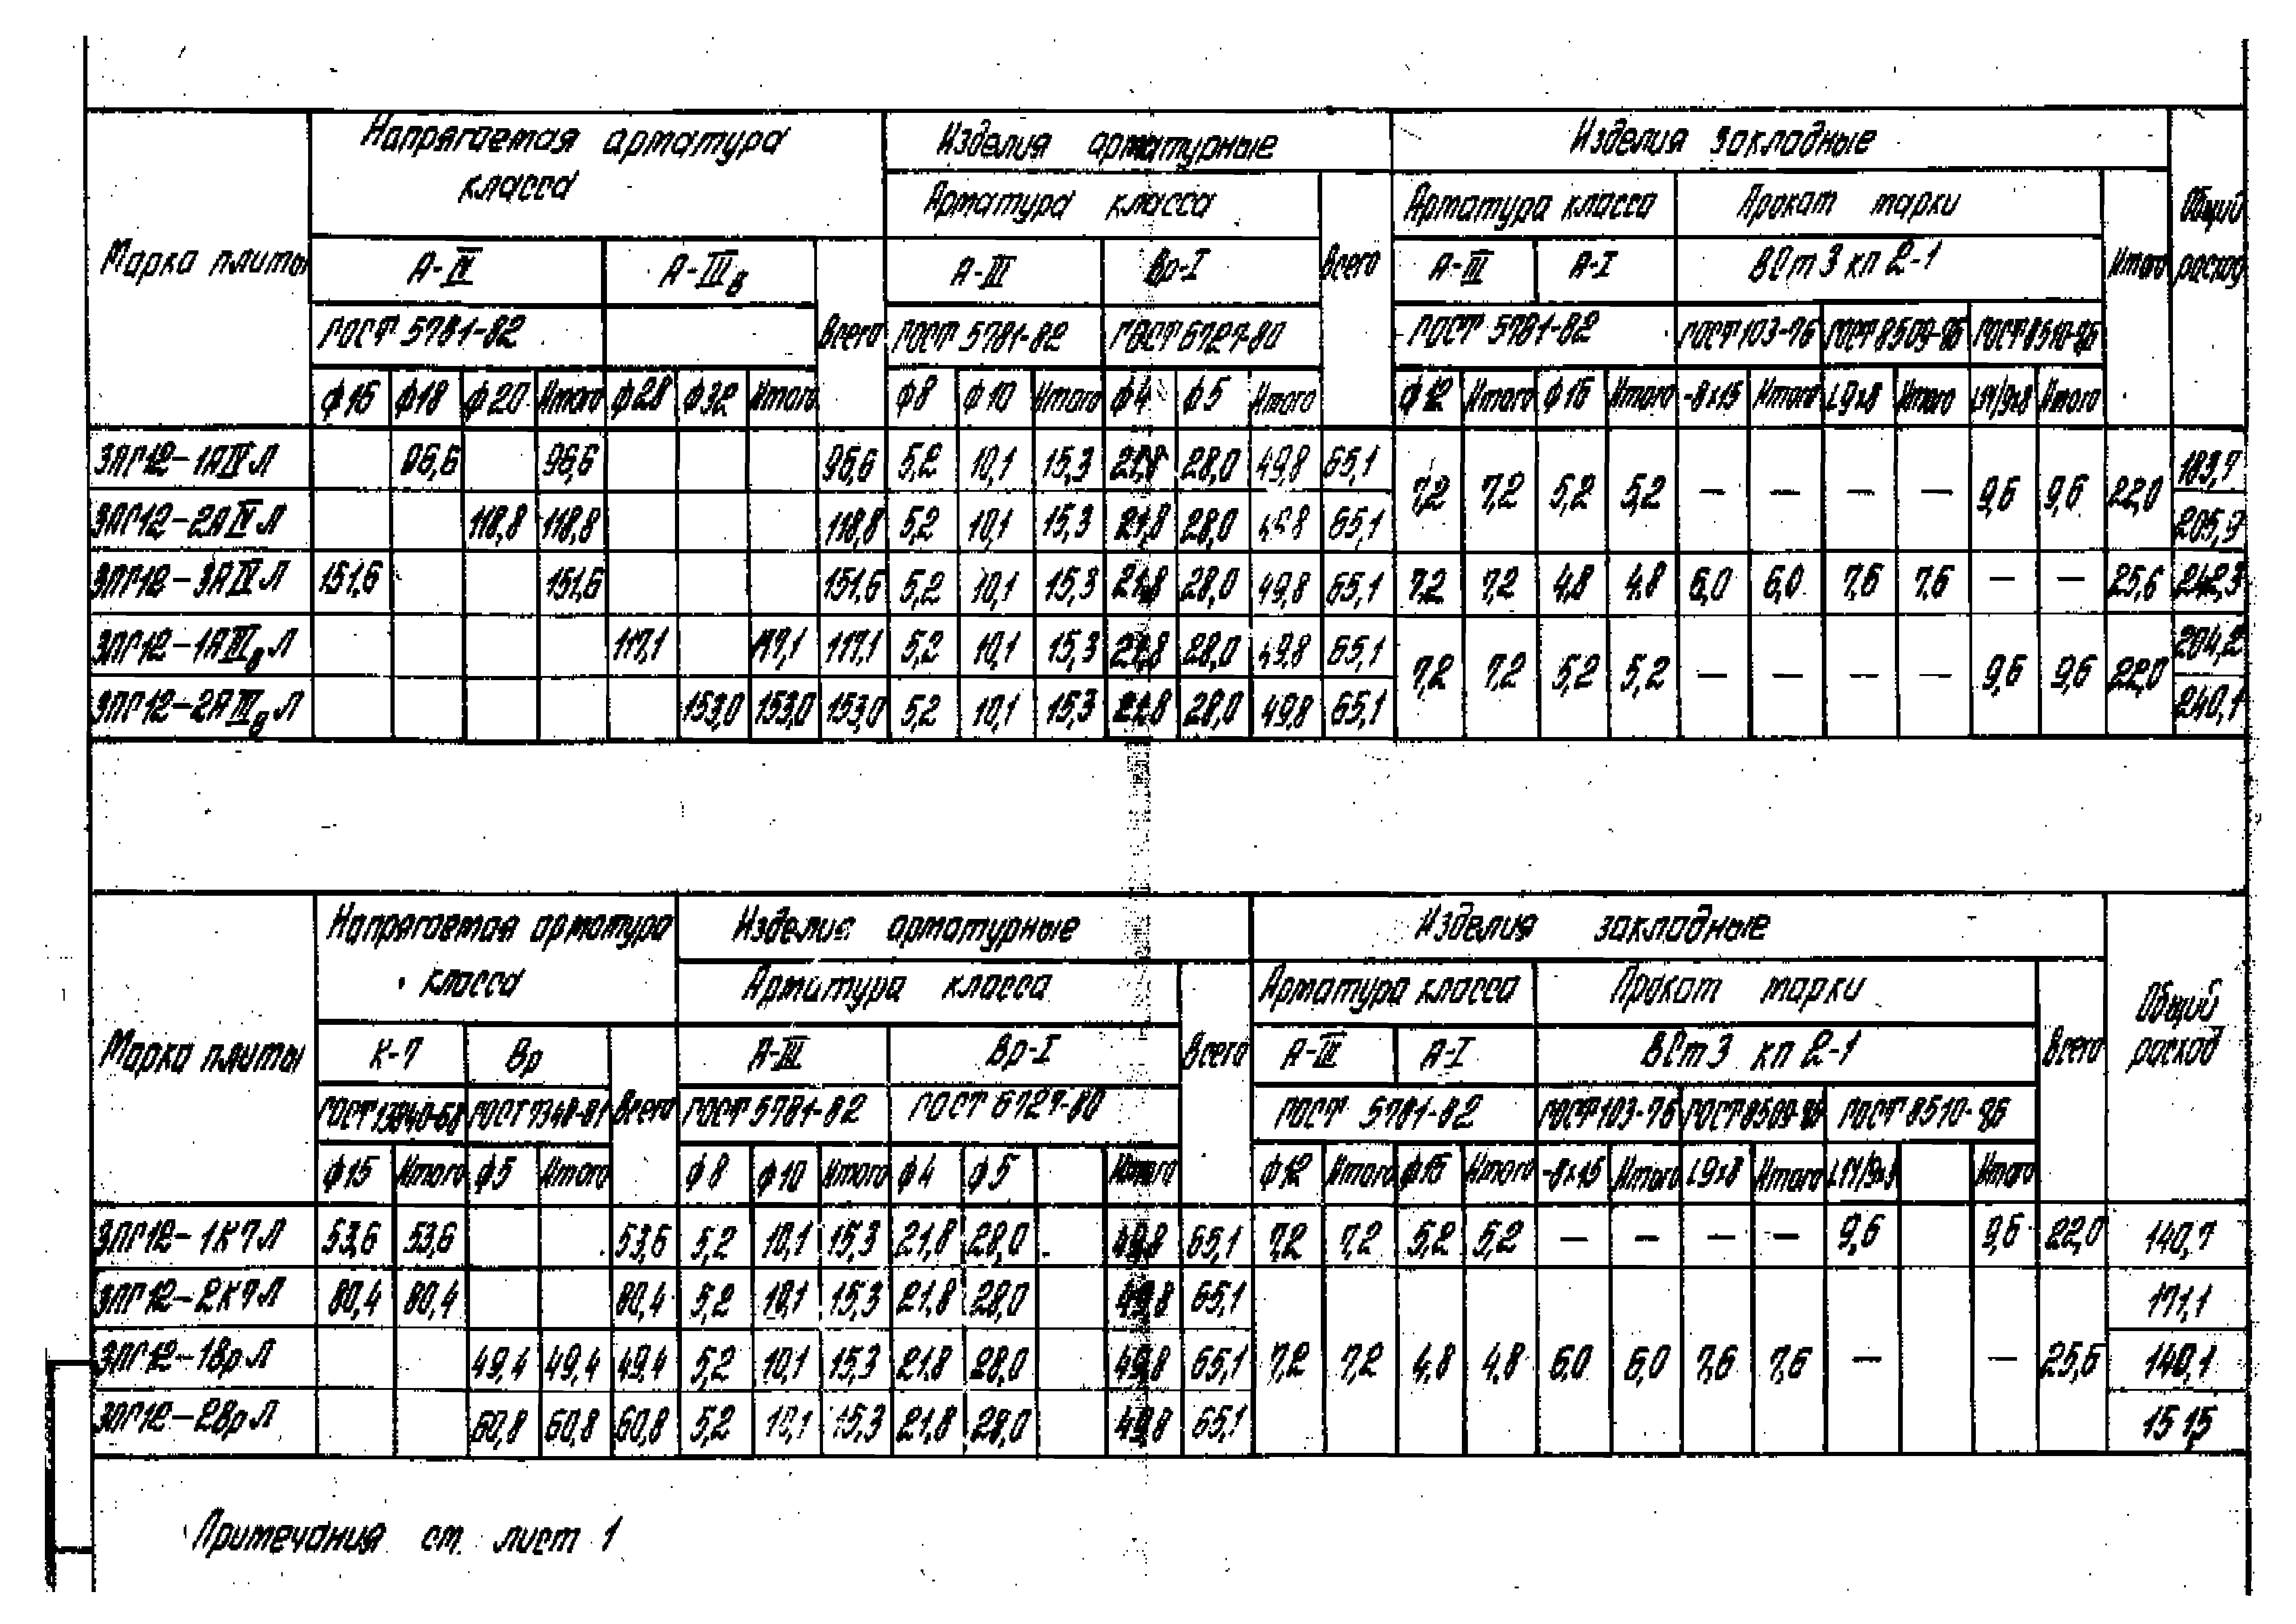 Марка плиты | Напрягаемая арматура класса | Изделия арматурные | Изделия закладные | Общий расход
Арматура класса | Всего | Арматура класса | Прокат марки | Итого
А-IV | А-IIIв | Всего | А-III | Вр-I | А-III | А-I | ВСт3 кп 2-1
ГОСТ 5781-82 | ГОСТ 5781-82 | ГОСТ 6727-80 | ГОСТ 5781-82 | ГОСТ 103-76 | ГОСТ 8509-86 | ГОСТ 8510-86
ф16 | ф18 | ф20 | Итого | ф28 | ф32 | Итого | ф8 | ф10 | Итого | ф4 | ф5 | Итого | ф12 | Итого | ф16 | Итого | -8х15 | Итого | L9х8 | Итого | Итого
3ПГ12-1АIVЛ | 96,6 | 96,6 | 96,6 | 5,2 | 10,1 | 15,3 | 21,8 | 28,0 | 49,8 | 65,1 | 7,2 | 7,2 | 5,2 | 5,2 | — | — | — | — | 9,6 | 9,6 | 22,0 | 183,7
3ПГ12-2АIVЛ | 118,8 | 118,8 | 118,8 | 5,2 | 10,1 | 15,3 | 21,8 | 28,0 | 49,8 | 65,1 | 205,9
3ПГ12-3АIVЛ | 151,6 | 151,6 | 151,6 | 5,2 | 10,1 | 15,3 | 21,8 | 28,0 | 49,8 | 65,1 | 7,2 | 7,2 | 4,8 | 4,8 | 6,0 | 6,0 | 7,6 | 7,6 | — | — | 25,6 | 242,3
3ПГ12-1АIIIвЛ | 117,1 | 117,1 | 117,1 | 5,2 | 10,1 | 15,3 | 21,8 | 28,0 | 49,8 | 65,1 | 7,2 | 7,2 | 5,2 | 5,2 | — | — | — | — | 9,6 | 9,6 | 22,0 | 204,2
3ПГ12-2АIIIвЛ | 153,0 | 153,0 | 153,0 | 5,2 | 10,1 | 15,3 | 21,8 | 28,0 | 49,8 | 65,1 | 240,1
Марка плиты | Напрягаемая арматура класса | Изделия арматурные | Изделия закладные | Общий расход
Арматура класса | Всего | Арматура класса | Прокат марки | Всего
К-7 | Вр | Всего | А-III | Вр-I | А-III | А-I | ВСт3 кп 2-1
ГОСТ 13840-68 | ГОСТ 7348-81 | ГОСТ 5781-82 | ГОСТ 6727-80 | ГОСТ 5781-82 | ГОСТ 103-76 | ГОСТ 8509-86 | ГОСТ 8510-86
ф15 | Итого | ф5 | Итого | ф8 | ф10 | Итого | ф4 | ф5 | Итого | ф12 | Итого | ф16 | Итого | -8х15 | Итого | L9х8 | Итого | Итого
3ПГ12-1К7Л | 53,6 | 53,6 | 53,6 | 5,2 | 10,1 | 15,3 | 21,8 | 28,0 | 49,8 | 65,1 | 7,2 | 7,2 | 5,2 | 5,2 | — | — | — | — | 9,6 | 9,6 | 22,0 | 140,7
3ПГ12-2К7Л | 80,4 | 80,4 | 80,4 | 5,2 | 10,1 | 15,3 | 21,8 | 28,0 | 49,8 | 65,1 | 171,1
3ПГ12-1ВрЛ | 49,4 | 49,4 | 49,4 | 5,2 | 10,1 | 15,3 | 21,8 | 28,0 | 49,8 | 65,1 | 7,2 | 7,2 | 4,8 | 4,8 | 6,0 | 6,0 | 7,6 | 7,6 | — | — | 25,6 | 140,1
3ПГ12-2ВрЛ | 60,8 | 60,8 | 60,8 | 5,2 | 10,1 | 15,3 | 21,8 | 28,0 | 49,8 | 65,1 | 151,5
Примечания см. лист 1